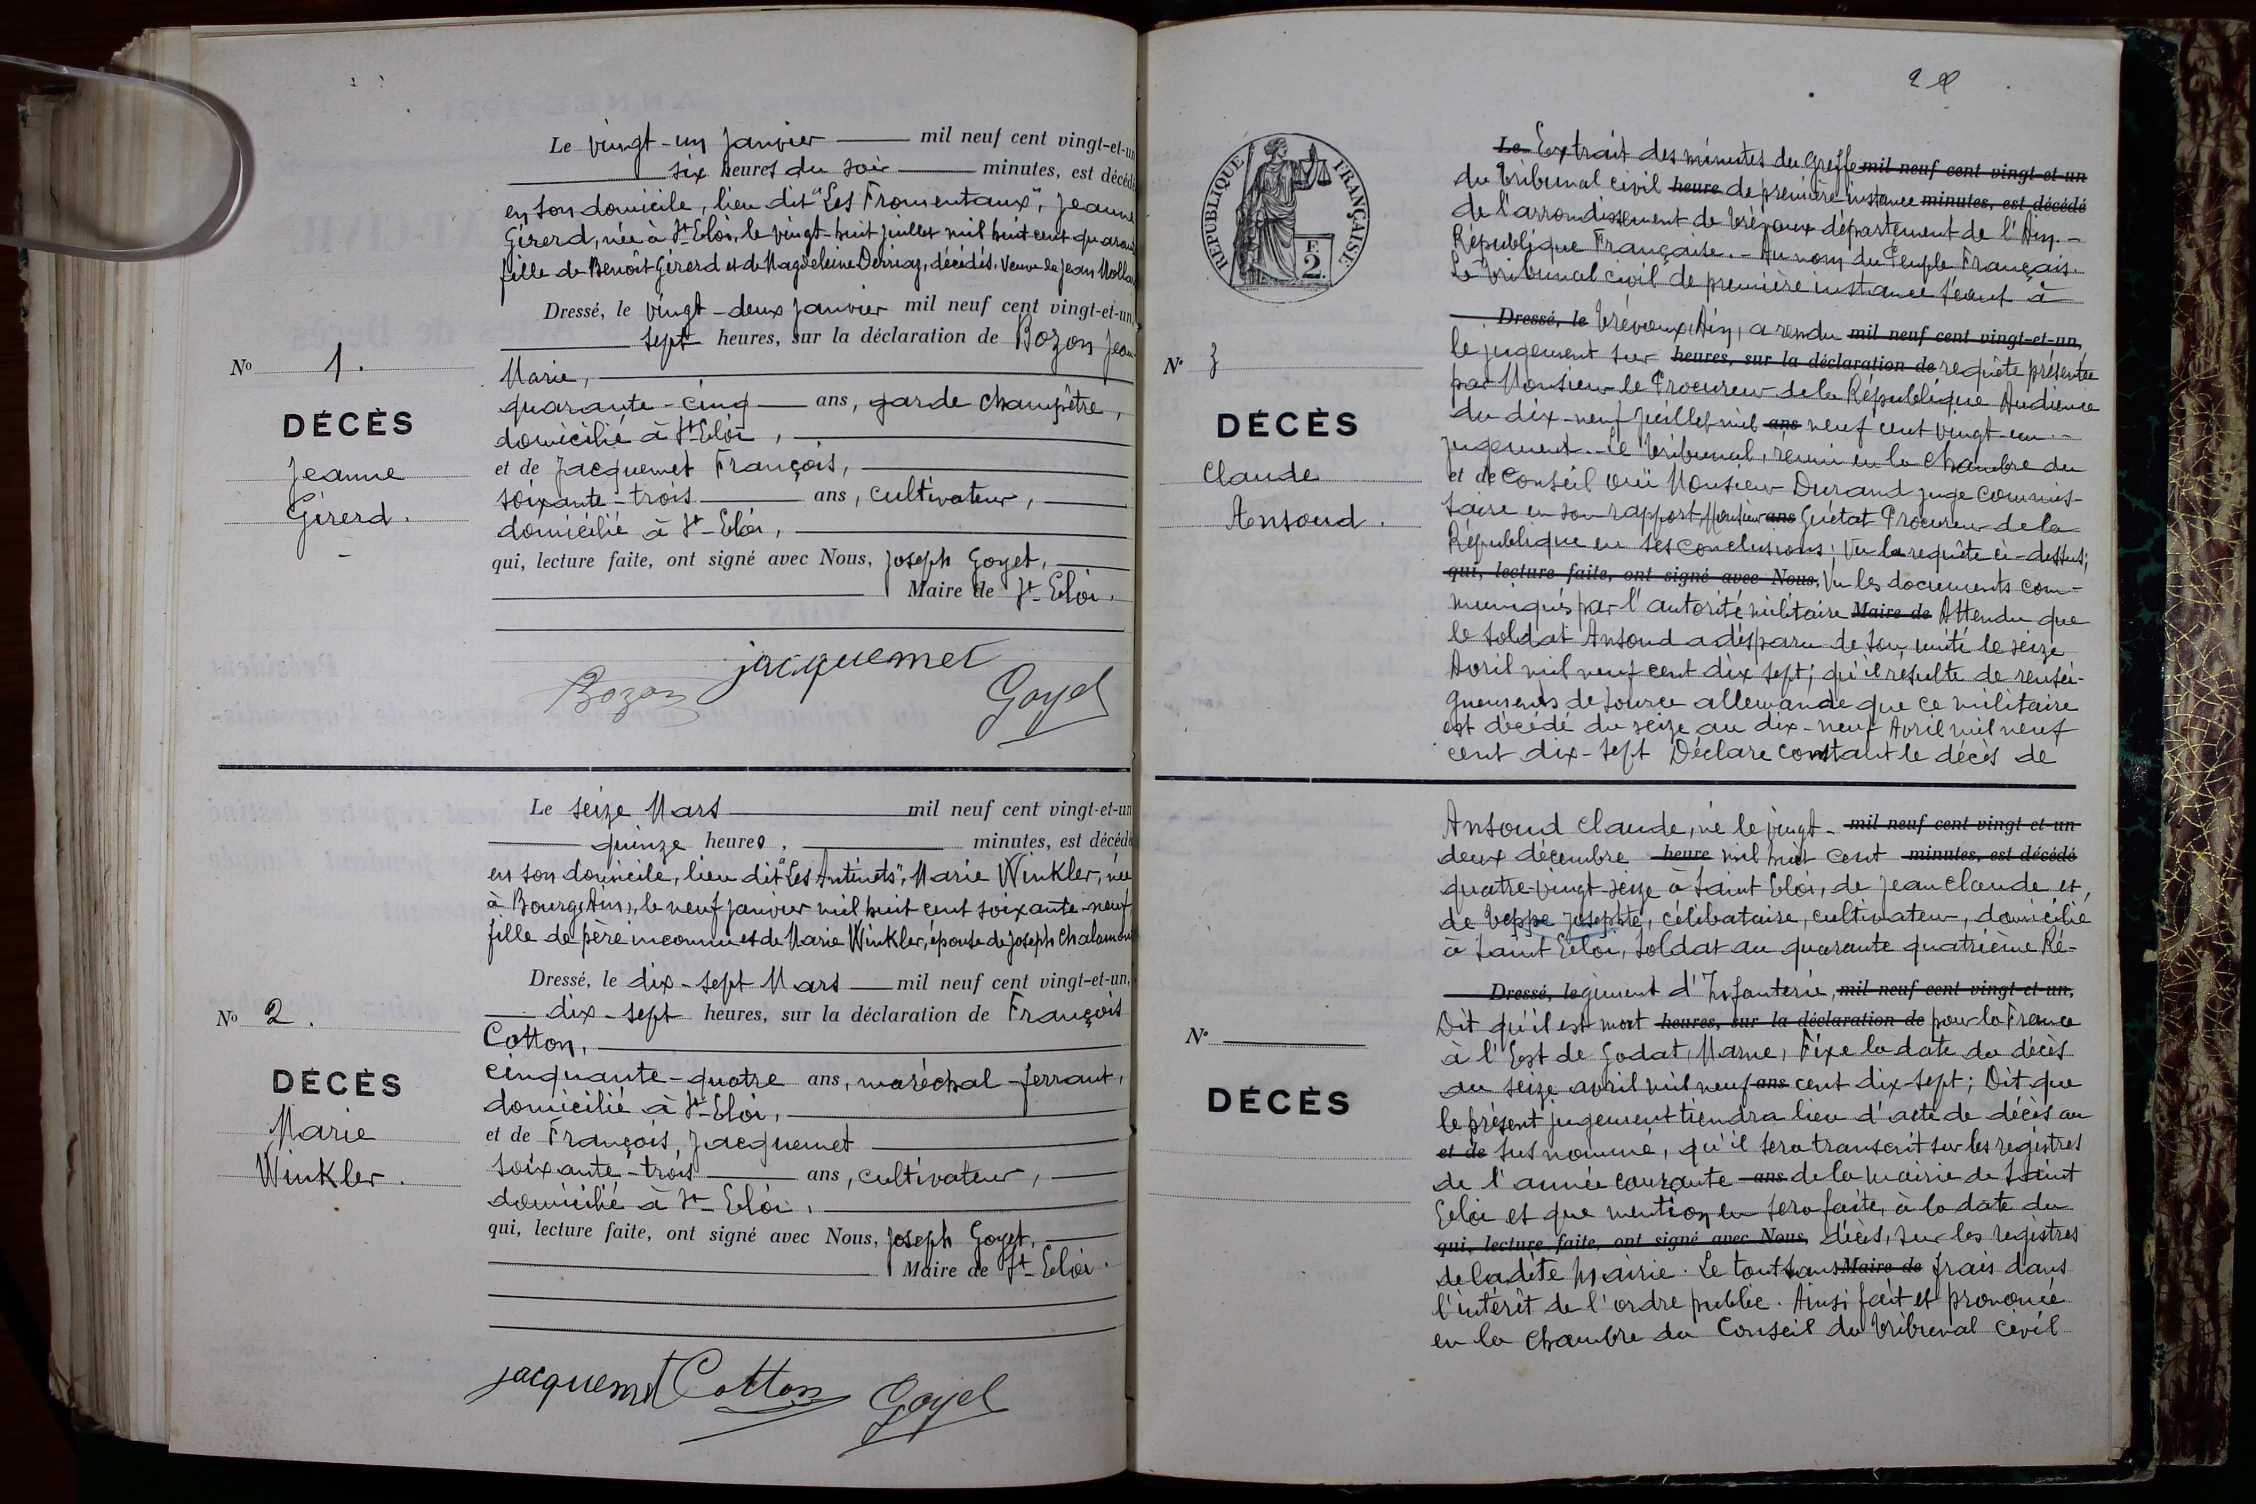 Le vingt-un Janvier mil neuf cent vingt-et-un
six heures du soir minutes, est décédé
en son domicile, lieu dit "Les Fromentaux", Jeanne
Gérerd, née à St Eloi, le vingt-huit juillet mil huit cent quarante
fille de Benoît Gérerd et de Magdeleine Derriaz, décédés. Veuve de Jean Mollar
Dressé, le vingt-deux Janvier mil neuf cent vingt-et-un,
sept heures, sur la déclaration de Bozon Jean
Marie,
quarante-cinq ans, garde champêtre,
domicilié à St Eloi,
et de Jacquemet François,
soixante-trois ans, cultivateur,
domicilié à St-Eloi,
qui, lecture faite, ont signé avec Nous, Joseph Goyet,
Maire de St-Eloi.
No 1.
DÉCÈS
Jeanne
Gérerd.
jacquemet
Bozon Goyet
Le seize Mars mil neuf cent vingt-et-un
quinze heures, minutes, est décédé
en son domicile, lieu dit "Les Antinets", Marie Winkler, née
à Bourg (Ain), le neuf janvier mil huit cent soixante-neuf
fille de père inconnu et de Marie Winkler, épouse de Joseph Chalamon
Dressé, le dix-sept Mars mil neuf cent vingt-et-un,
dix-sept heures, sur la déclaration de François
Cotton,
cinquante-quatre ans, maréchal-ferrant,
domicilié à St-Eloi,
et de François Jacquemet
soixante-trois ans, cultivateur,
domicilié à St-Eloi,
qui, lecture faite, ont signé avec Nous, Joseph Goyet,
Maire de St-Eloi.
No 2.
DÉCÈS
Marie
Winkler.
jacquemet Cotton Goyet
RÉPUBLIQUE FRANÇAISE
F.
2.
Le Extrait des minutes du Greffe mil neuf cent vingt-et-un
du Tribunal civil heure de première instance minutes, est décédé
de l'arrondissement de Trévoux département de l'Ain.-
République Française.- Au nom du Peuple Français.
Le Tribunal civil de première instance séant à
Dressé, le Trévoux, Ain, a rendu mil neuf cent vingt-et-un,
le jugement sur heures, sur la déclaration de requête présentée
par Monsieur le Procureur de la République Audience
du dix-neuf juillet mil ans neuf cent vingt-un.-
Jugement.- Le Tribunal, réuni en la Chambre du
et de Conseil ouï Monsieur Durand juge commis-
saire en son rapport, Monsieur ans Guétat Procureur de la
République en ses conclusions; Vu la requête ci-dessus;
qui, lecture faite, ont signé avec Nous, Vu les documents com-
muniqués par l'autorité militaire Maire de Attendu que
le soldat Ansoud a disparu de son unité le seize
Avril mil neuf cent dix sept; qu'il résulte de rensei-
gnements de source allemande que ce militaire
est décédé du seize au dix-neuf Avril mil neuf
cent dix-sept Déclare constant le décès de
No 3
DÉCÈS
Claude
Ansoud.
Ansoud Claude, né le vingt- mil neuf cent vingt-et-un
deux décembre heure mil huit cent minutes, est décédé
quatre-vingt-seize à Saint Eloi, de Jean Claude et
de Veppe Josephte, célibataire, cultivateur, domicilié
à Saint Eloi, soldat au quarante quatrième Ré-
Dressé, le giment d'Infanterie, mil neuf cent vingt-et-un,
Dit qu'il est mort heures, sur la déclaration de pour la France
à l'Est de Godat, Marne, Fixe la date du décès
au seize avril mil neuf ans cent dix-sept; Dit que
le présent jugement tiendra lieu d'acte de décès au
et de sus nommé, qu'il sera transcrit sur les registres
de l'année courante ans de la mairie de Saint
Eloi et que mention en sera faite, à la date du
qui, lecture faite, ont signé avec Nous, décès, sur les registres
de ladite mairie. Le tout sans Maire de frais dans
l'intérêt de l'ordre public. Ainsi fait et prononcé
en la chambre du Conseil du Tribunal civil
No
DÉCÈS